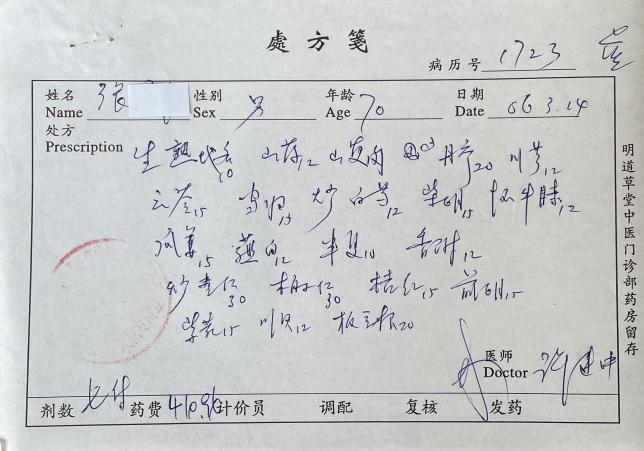 處方箋
病历号 1723
姓名 张 性别 年龄 日期
Name Sex 男 Age 70 Date 06 3.14
处方
Prescription
生熟地各10 山药12 山萸肉 丹 20 川芎12
云苓15 当归15 炒白芍12 柴胡15 怀牛膝12
15 薤白12 半夏10 香附12
炒枣仁30 柏子仁30 桔红15 前胡15
紫菀15 川贝12 板兰根20
明道草堂中医门诊部药房留存
医师
Doctor 许建中
剂数 七付 药费 410.96 计价员 调配 复核 发药